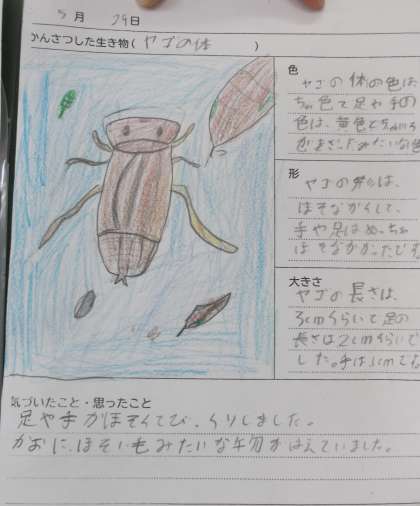 5月29日
かんさつした生き物(ヤゴの体)
色
ヤゴの体の色は、
ちゃ色で足や手の
色は、黄色とちゃいろ
がまざったみたいな色
形
ヤゴの形は、
ほそながくて、
手や足はめっちゃ
ほそながかったです
大きさ
ヤゴの長さは、
3cmくらいで足の
長さは2cmくらいで
した。手は1cmでし
気づいたこと・思ったこと
足や手がほそくてびっくりしました。
かおに、ほそい毛みたいな部分がはえていました。